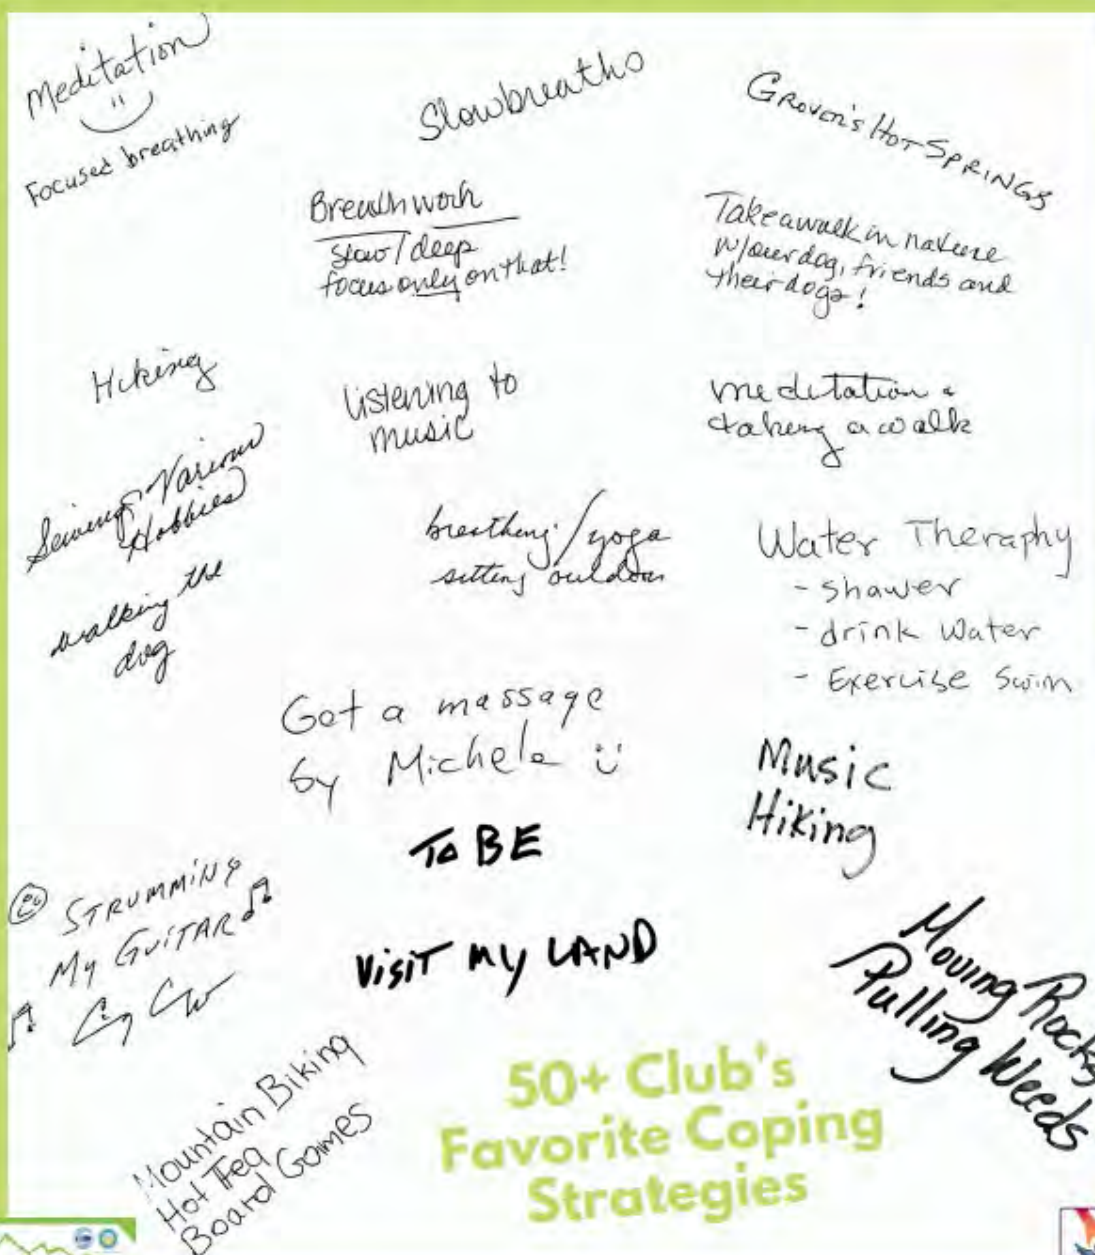 Meditation
Focused breathing
Slow breaths
Grover's Hot Springs
Breathwork
slow / deep
focus only on that!
Take a walk in nature
w/our dog, friends and
their dogs!
Hiking
Listening to
music
meditation &
taking a walk
Sewing, Various
Hobbies
walking the
dog
breathing / yoga
sitting outdoors
Water Theraphy
- shower
- drink water
- Exercise Swim
Get a massage
by Michele
Music
Hiking
TO BE
STRUMMING
MY GUITAR
VISIT MY LAND
Moving Rocks
Pulling Weeds
Mountain Biking
Hot Tea
Board Games
50+ Club's
Favorite Coping
Strategies